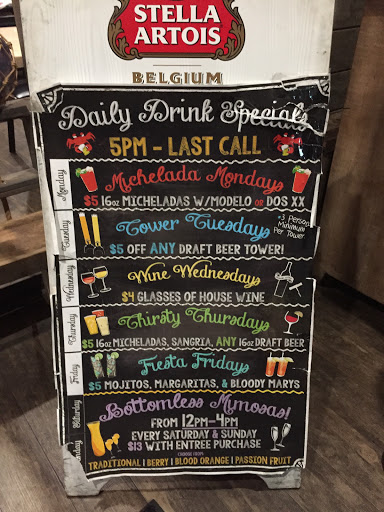 STELLA
ARTOIS
BELGIUM
Daily Drink Specials
5PM - LAST CALL
Monday
Michelada Mondays
$5 16oz MICHELADAS W/MODELO OR DOS XX
Tuesday
Tower Tuesdays
+3 Person
Minimum
Per Tower
$5 OFF ANY DRAFT BEER TOWER!
Wednesday
Wine Wednesdays
$4 GLASSES OF HOUSE WINE
Thursday
Thirsty Thursdays
$5 16oz MICHELADAS, SANGRIA, ANY 16oz DRAFT BEER
Friday
Fiesta Fridays
$5 MOJITOS, MARGARITAS, & BLOODY MARYS
Saturday
Sunday
Bottomless Mimosas!
FROM 12PM-4PM
EVERY SATURDAY & SUNDAY
$13 WITH ENTREE PURCHASE
CHOOSE FROM:
TRADITIONAL | BERRY | BLOOD ORANGE | PASSION FRUIT